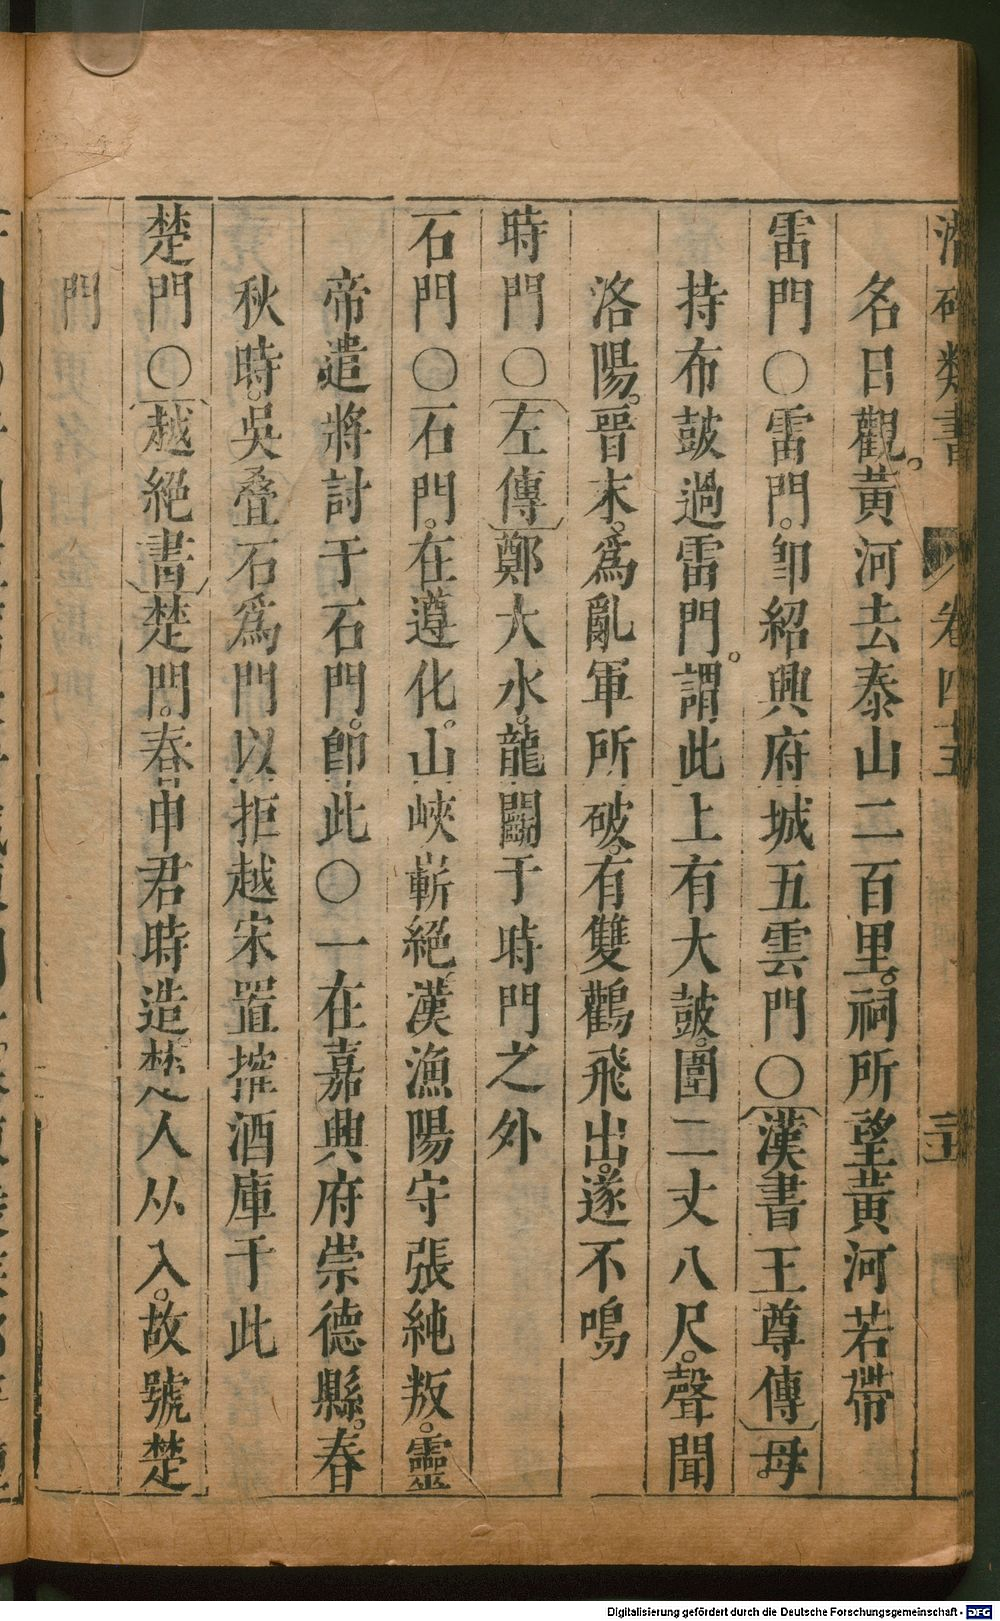 潛確類書 卷四十五 三十
名日觀。黃河去泰山二百里。祠所望黃河若帶
雷門○雷門。卽紹興府城五雲門○漢書王尊傳母
持布鼓過雷門。謂此上有大鼓。圍二丈八尺。聲聞
洛陽。晉末。爲亂軍所破。有雙鶴飛出。遂不鳴
時門○左傳鄭大水。龍鬭于時門之外
石門○石門。在遵化。山峽嶄絕。漢漁陽守張純叛。靈
帝遣將討于石門。卽此○一在嘉興府崇德縣。春
秋時。吳叠石爲門以拒越宋置搉酒庫于此
楚門○越絕書楚門。春申君時造。楚人从入。故號楚
門
Digitalisierung gefördert durch die Deutsche Forschungsgemeinschaft - DFG